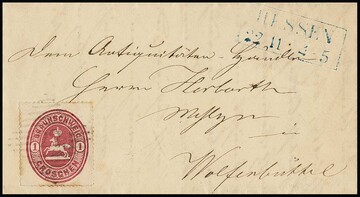 HESSEN
22 11 4-5
Dem Antiquitäten-Händler
Herrn Herbordt
in
Wolfenbüttel
BRAUNSCHWEIG
1 1
GROSCHEN